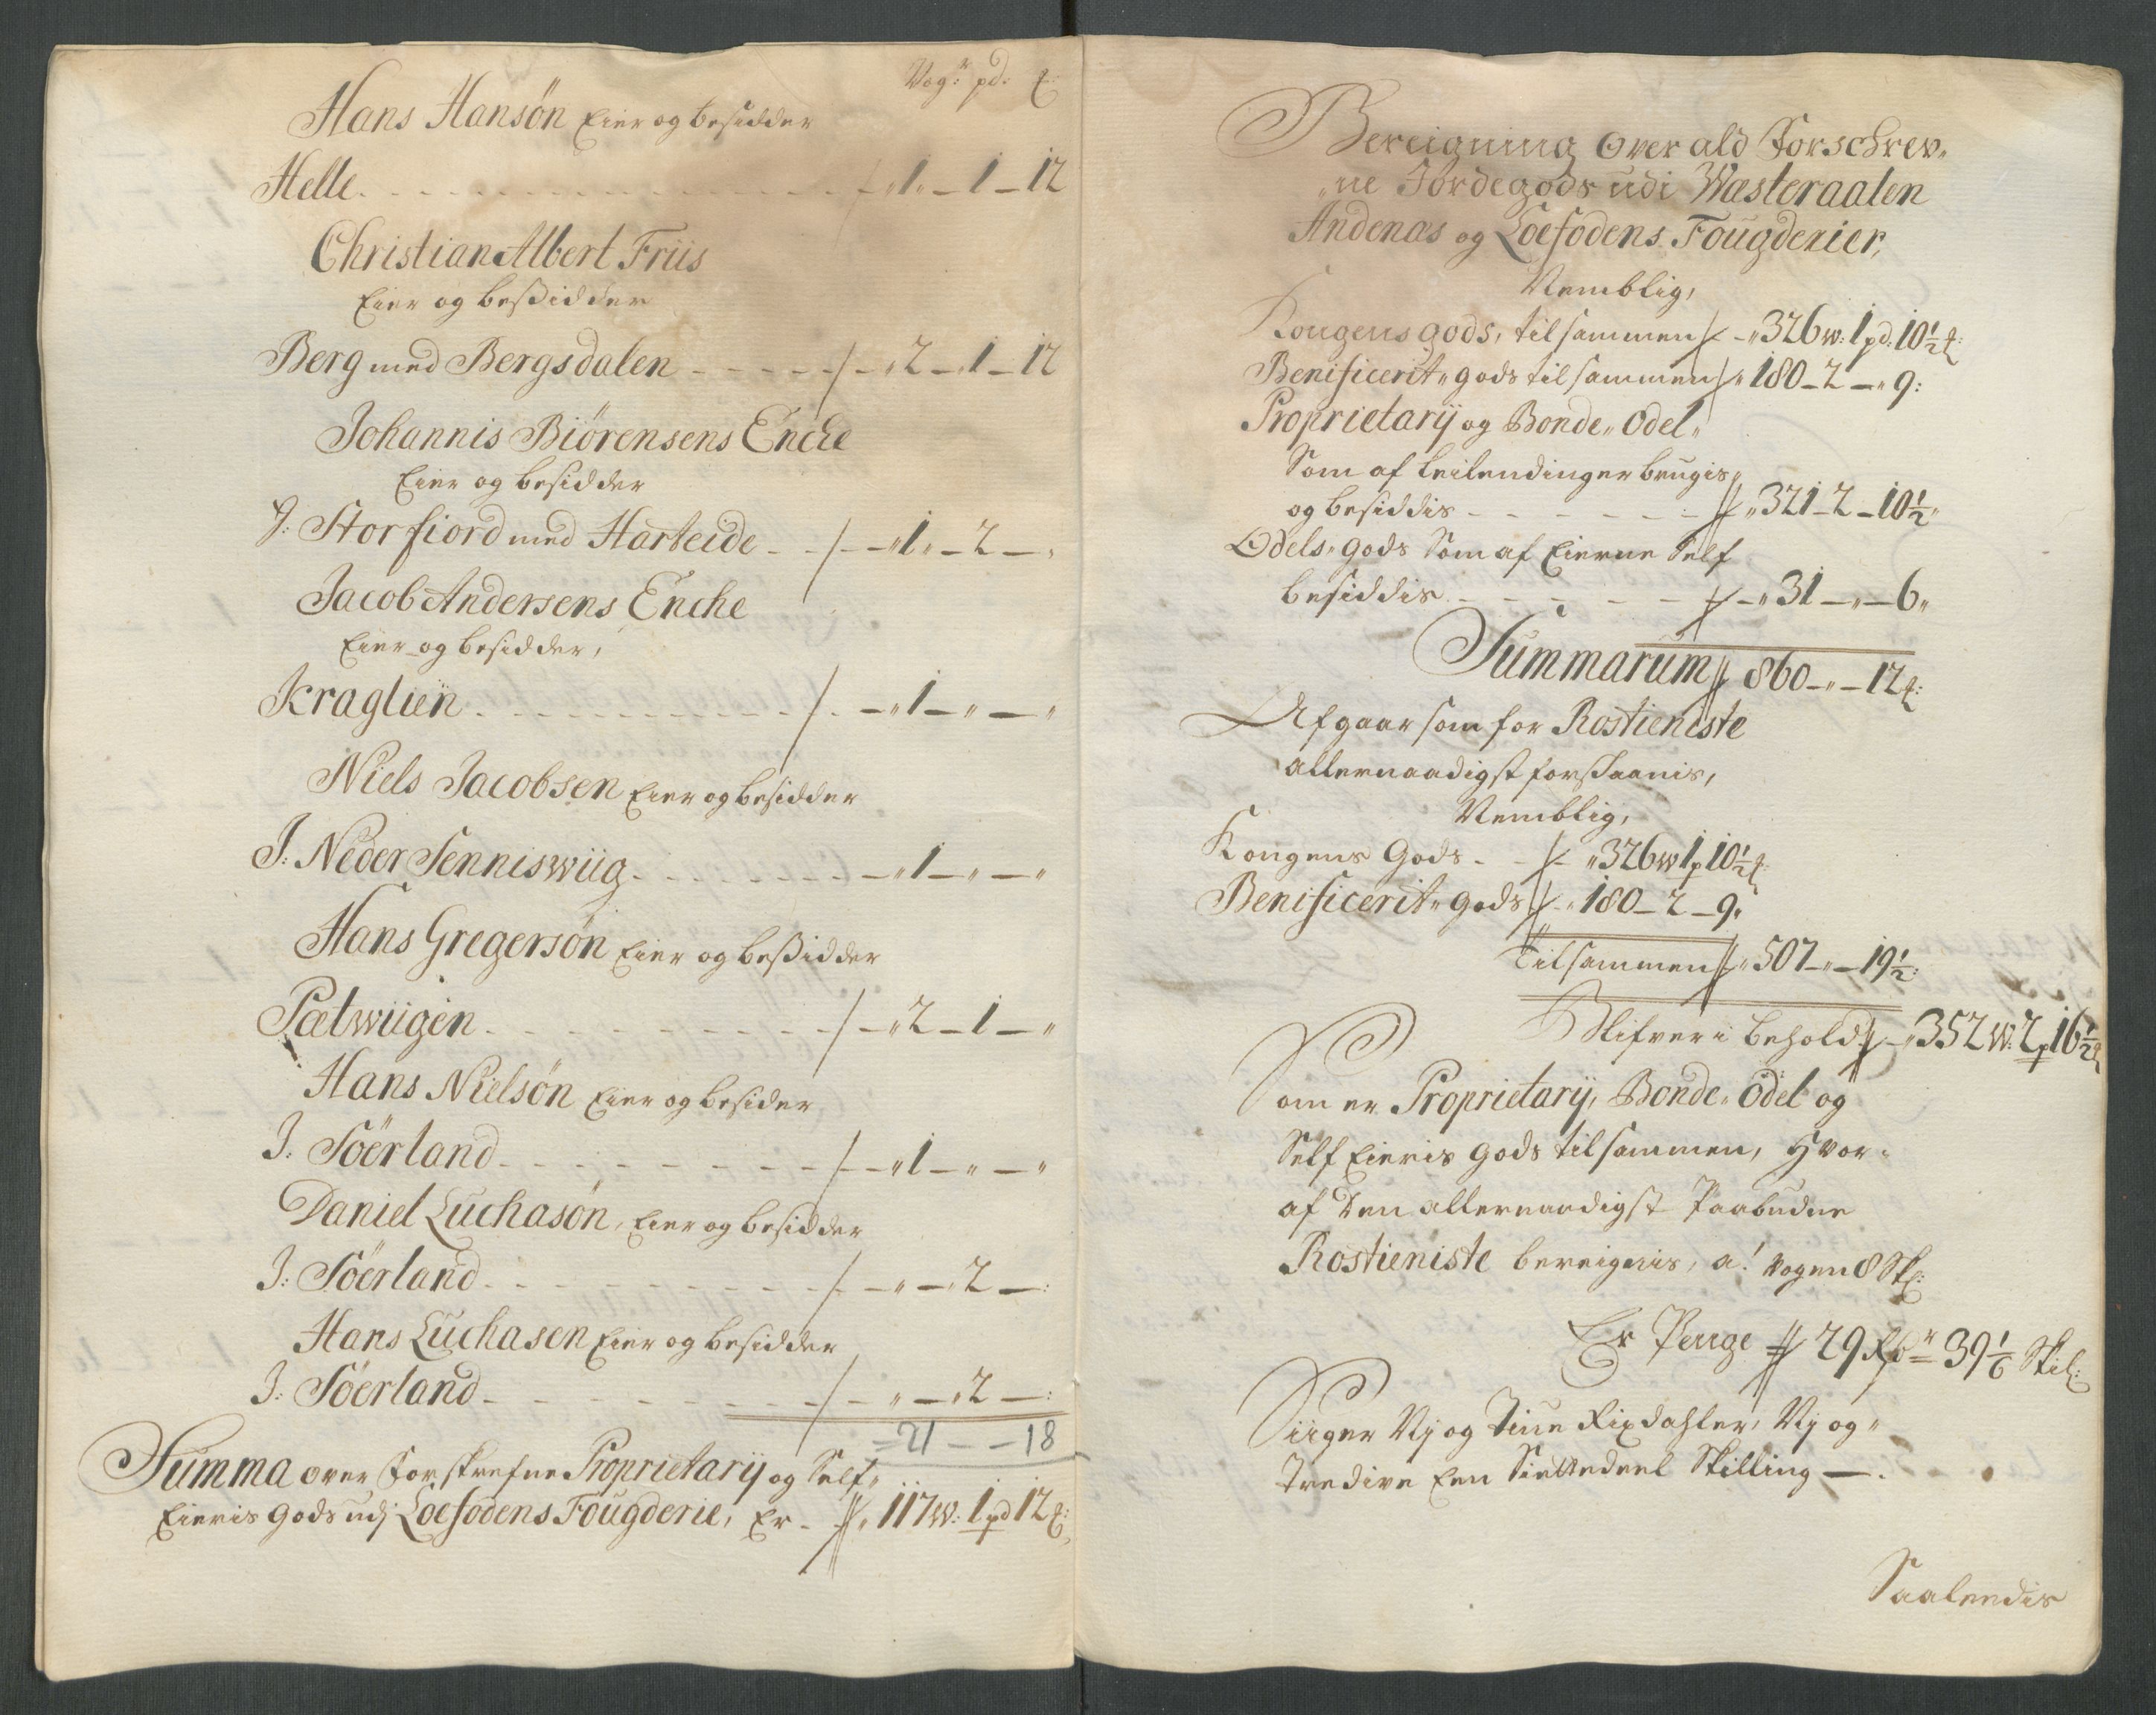 Vog:r pd: ℔:
Hans Hansøn Eier og besidder
Helle - - - /- „1„ - 1 - 12
Christian Albert Friis
Eier og beszidder
Berg med Bergsdalen - - - /- „2 - 1 - 12
Johannis Biörensens Encke
Eier og besidder
J: Storfiord med Harteide - - /- „1„ - 2 - „
Jacob Andersens Enche
Eier og besidder,
Kraglien - - - /- „1 - „ - „
Niels Jacobsen Eier og besidder
J: Neder Senniswiig - - - „1 - „ - „
Hans Gregersøn Eier og beszidder
Pætwiigen - - - /- „2 - 1 - „
Hans Nielsøn Eier og besider
J: Söerland - - - /- „1 - „ - „
Daniel Luchasøn, Eier og besidder
J: Söerland - - - /- „ - 2 - :
Hans Luchasen Eier og besidder
J: Söerland - - - /- „ - 2 - :
= 21 - - 18
Summa over Forskrefne Proprietarij og Self„
Eieris Gods udj Loefodens Fougderie, Er - //„ 117w: 1pd 12℔:
Bereigning over ald Forschrev„
„ne Jordegods udi Wæsteraalen
Andenæs og Loefodens Fougderier,
Nemblig,
Kongens gods, tilsammen /- „326w: 1pd: 10½℔:
Benificerit„ gods tilsammen /„ 180 - 2 - „ 9:
Proprietarij og Bonde„ Odel„
Som af Leilendinger brugis„
og besiddis - - - //„ 321 - 2 - 10½„
Odels„ gods Som af Eierne Self
besiddis - - - /- „31 - „ - 6„
Summarum // 860 - „ - 12℔:
Afgaar som for Rostieniste
allernaadigst forskaanis,
Nemblig,
Kongens Gods - - /- „326w 1p 10½℔:
Benificerit„ gods /- „ 180 - 2 - 9„
Tilsammen //„ 507 - „ - 19½:
Blifver i behold // - „352w: 2p 16½℔
Som er Proprietarij, Bonde„ Odel og
Self Eieris gods tilsammen, Hvor„
af Den allernaadigst Paabudne
Rostieniste bereignis, a! wogen 8 Sk:
Er Penge // 29 Rdr 39 1/6 Skil:
Siiger Nj og Tiue Rixdahler, Nj og„
Tredive Een Siettedeel Skilling —.
Saaledis